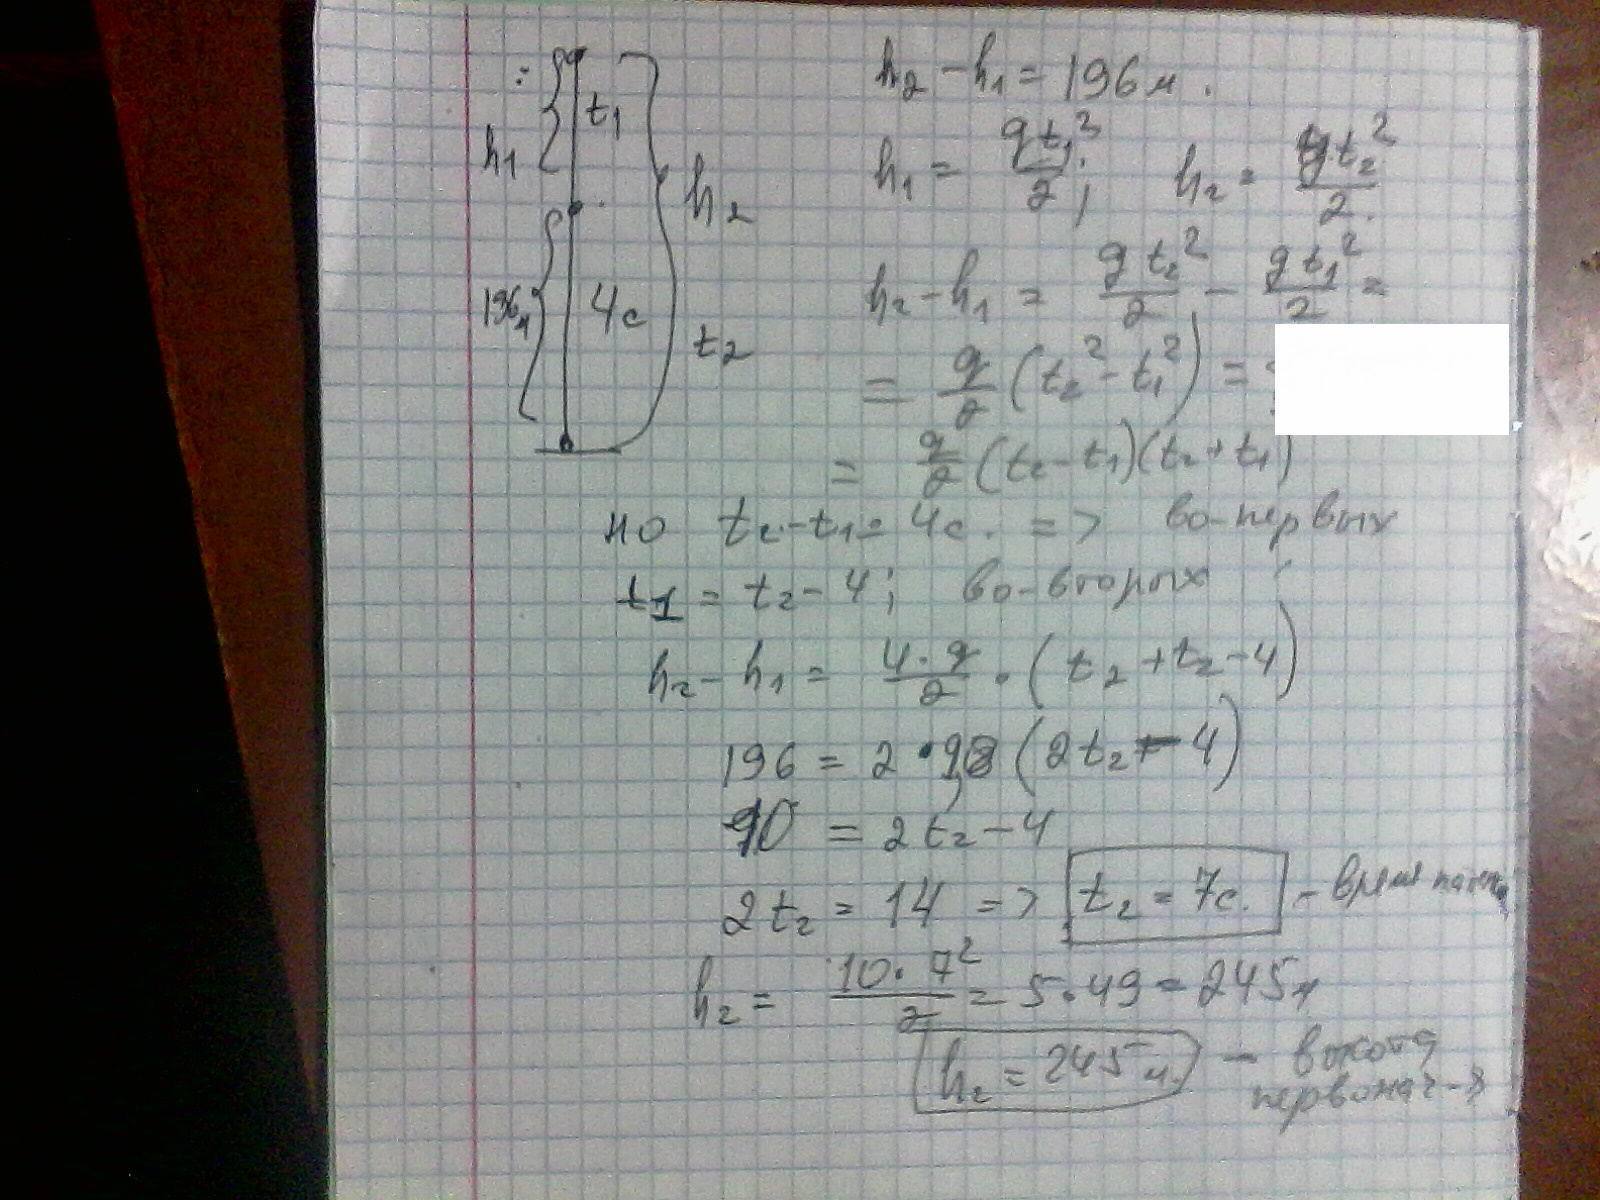 h₁
t₁
h₂
196 м
4с
t₂
h₂ – h₁ = 196 м.
h₁ = gt₁²/2; h₂ = gt₂²/2.
h₂ – h₁ = gt₂²/2 – gt₁²/2 =
= g/2 (t₂² – t₁²) =
= g/2 (t₂ – t₁)(t₂ + t₁)
но t₂ – t₁ = 4с. => во-первых
t₁ = t₂ – 4; во-вторых
h₂ – h₁ = 4·g/2 · (t₂ + t₂ – 4)
196 = 2 · 9,8 (2t₂ – 4)
10 = 2t₂ – 4
2t₂ = 14 => t₂ = 7с. – время
h₂ = 10·7²/2 = 5·49 = 245 м
h₂ = 245 м. – высота
первонач-я